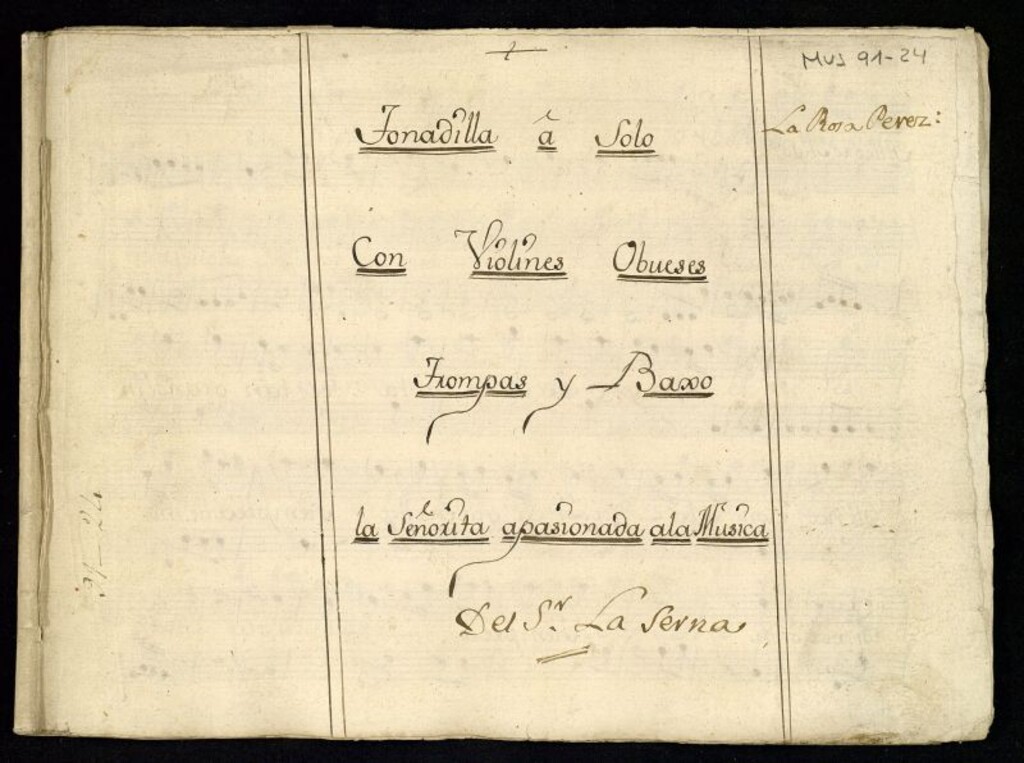 MUS 91-24
La Rosa Perez:
Tonadilla â Solo
Con Violines Obueses
Trompas y Baxo
la Señorita apasionada ala Musica
Del Sr. La Serna